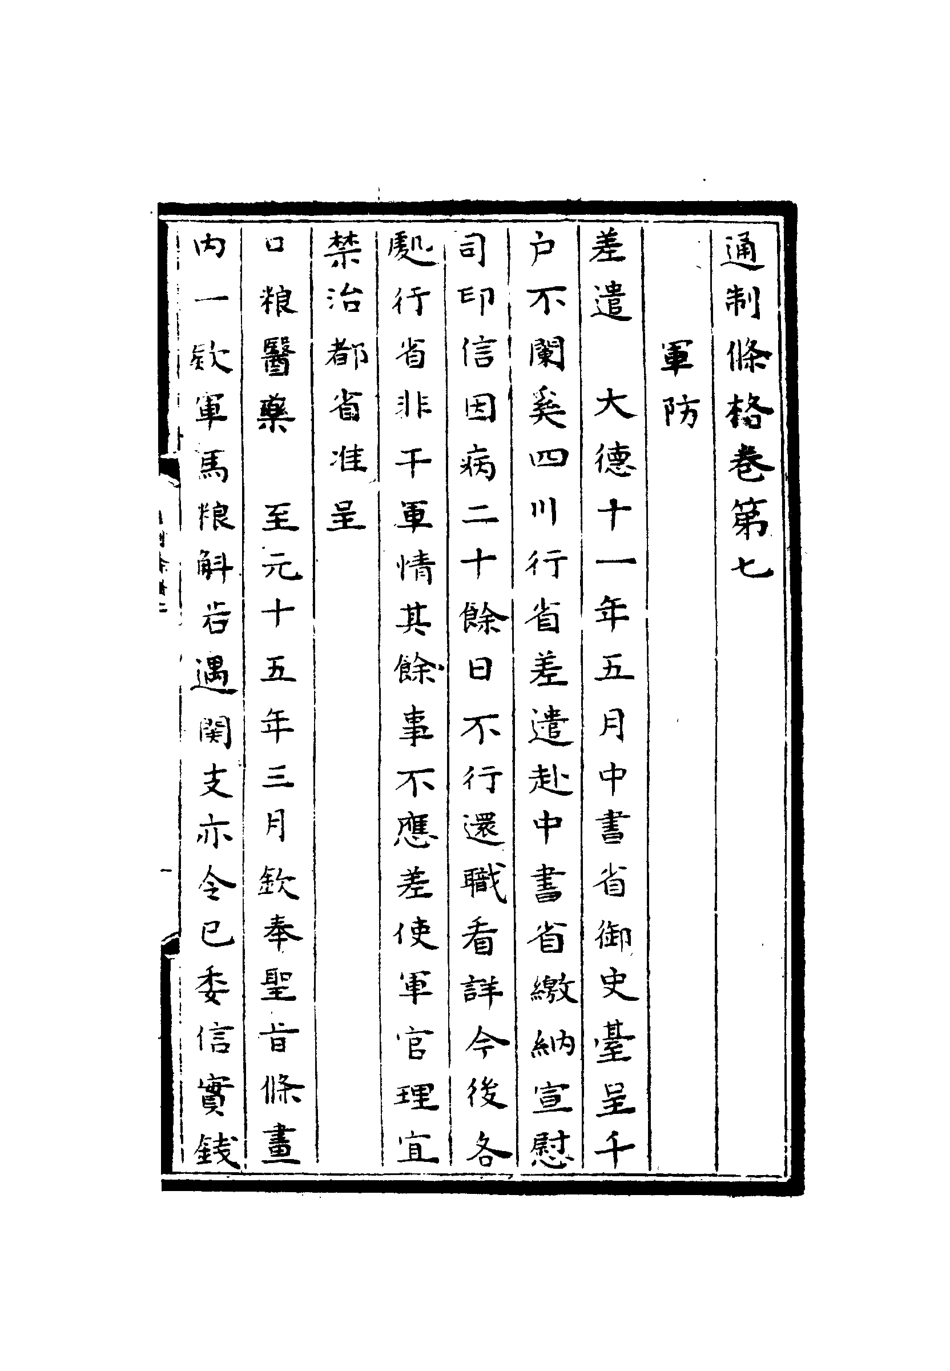 通制條格卷第七
軍防
差遣　大德十一年五月中書省御史臺呈千
户不闌奚四川行省差遣赴中書省繳納宣慰
司印信因病二十餘日不行還職看詳今後各
處行省非干軍情其餘事不應差使軍官理宜
禁治都省准呈
口粮醫藥　至元十五年三月欽奉聖旨條畫
内一欵軍馬粮斛若遇関支亦令已委信實錢